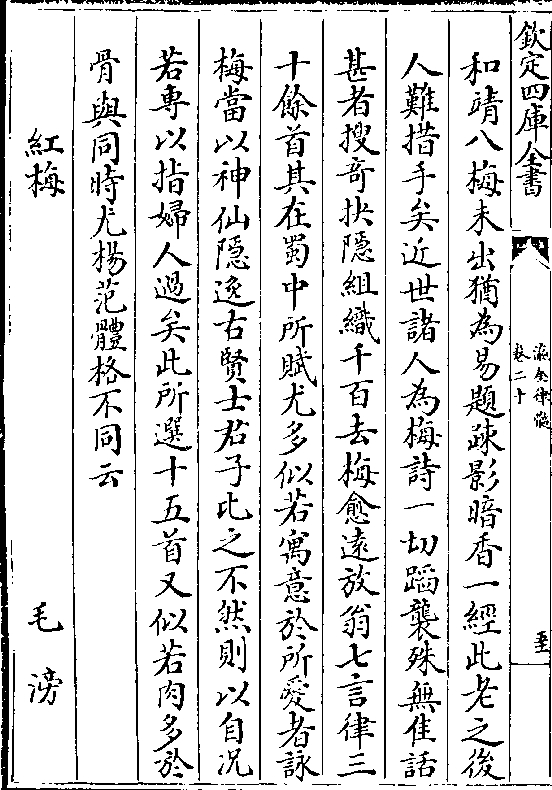 欽定四庫全書
瀛奎律髓
卷二十
和靖八梅未出猶為易題疎影暗香一經此老之後
人難措手矣近世諸人為梅詩一切蹈襲殊無佳話
甚者搜竒抉隱組織千百去梅愈遠放翁七言律三
十餘首其在蜀中所賦尤多似若寓意於所愛者詠
梅當以神仙隱逸古賢士君子比之不然則以自况
若専以指婦人過矣此所選十五首又似若肉多於
骨與同時尤楊范體格不同云
紅梅 毛滂